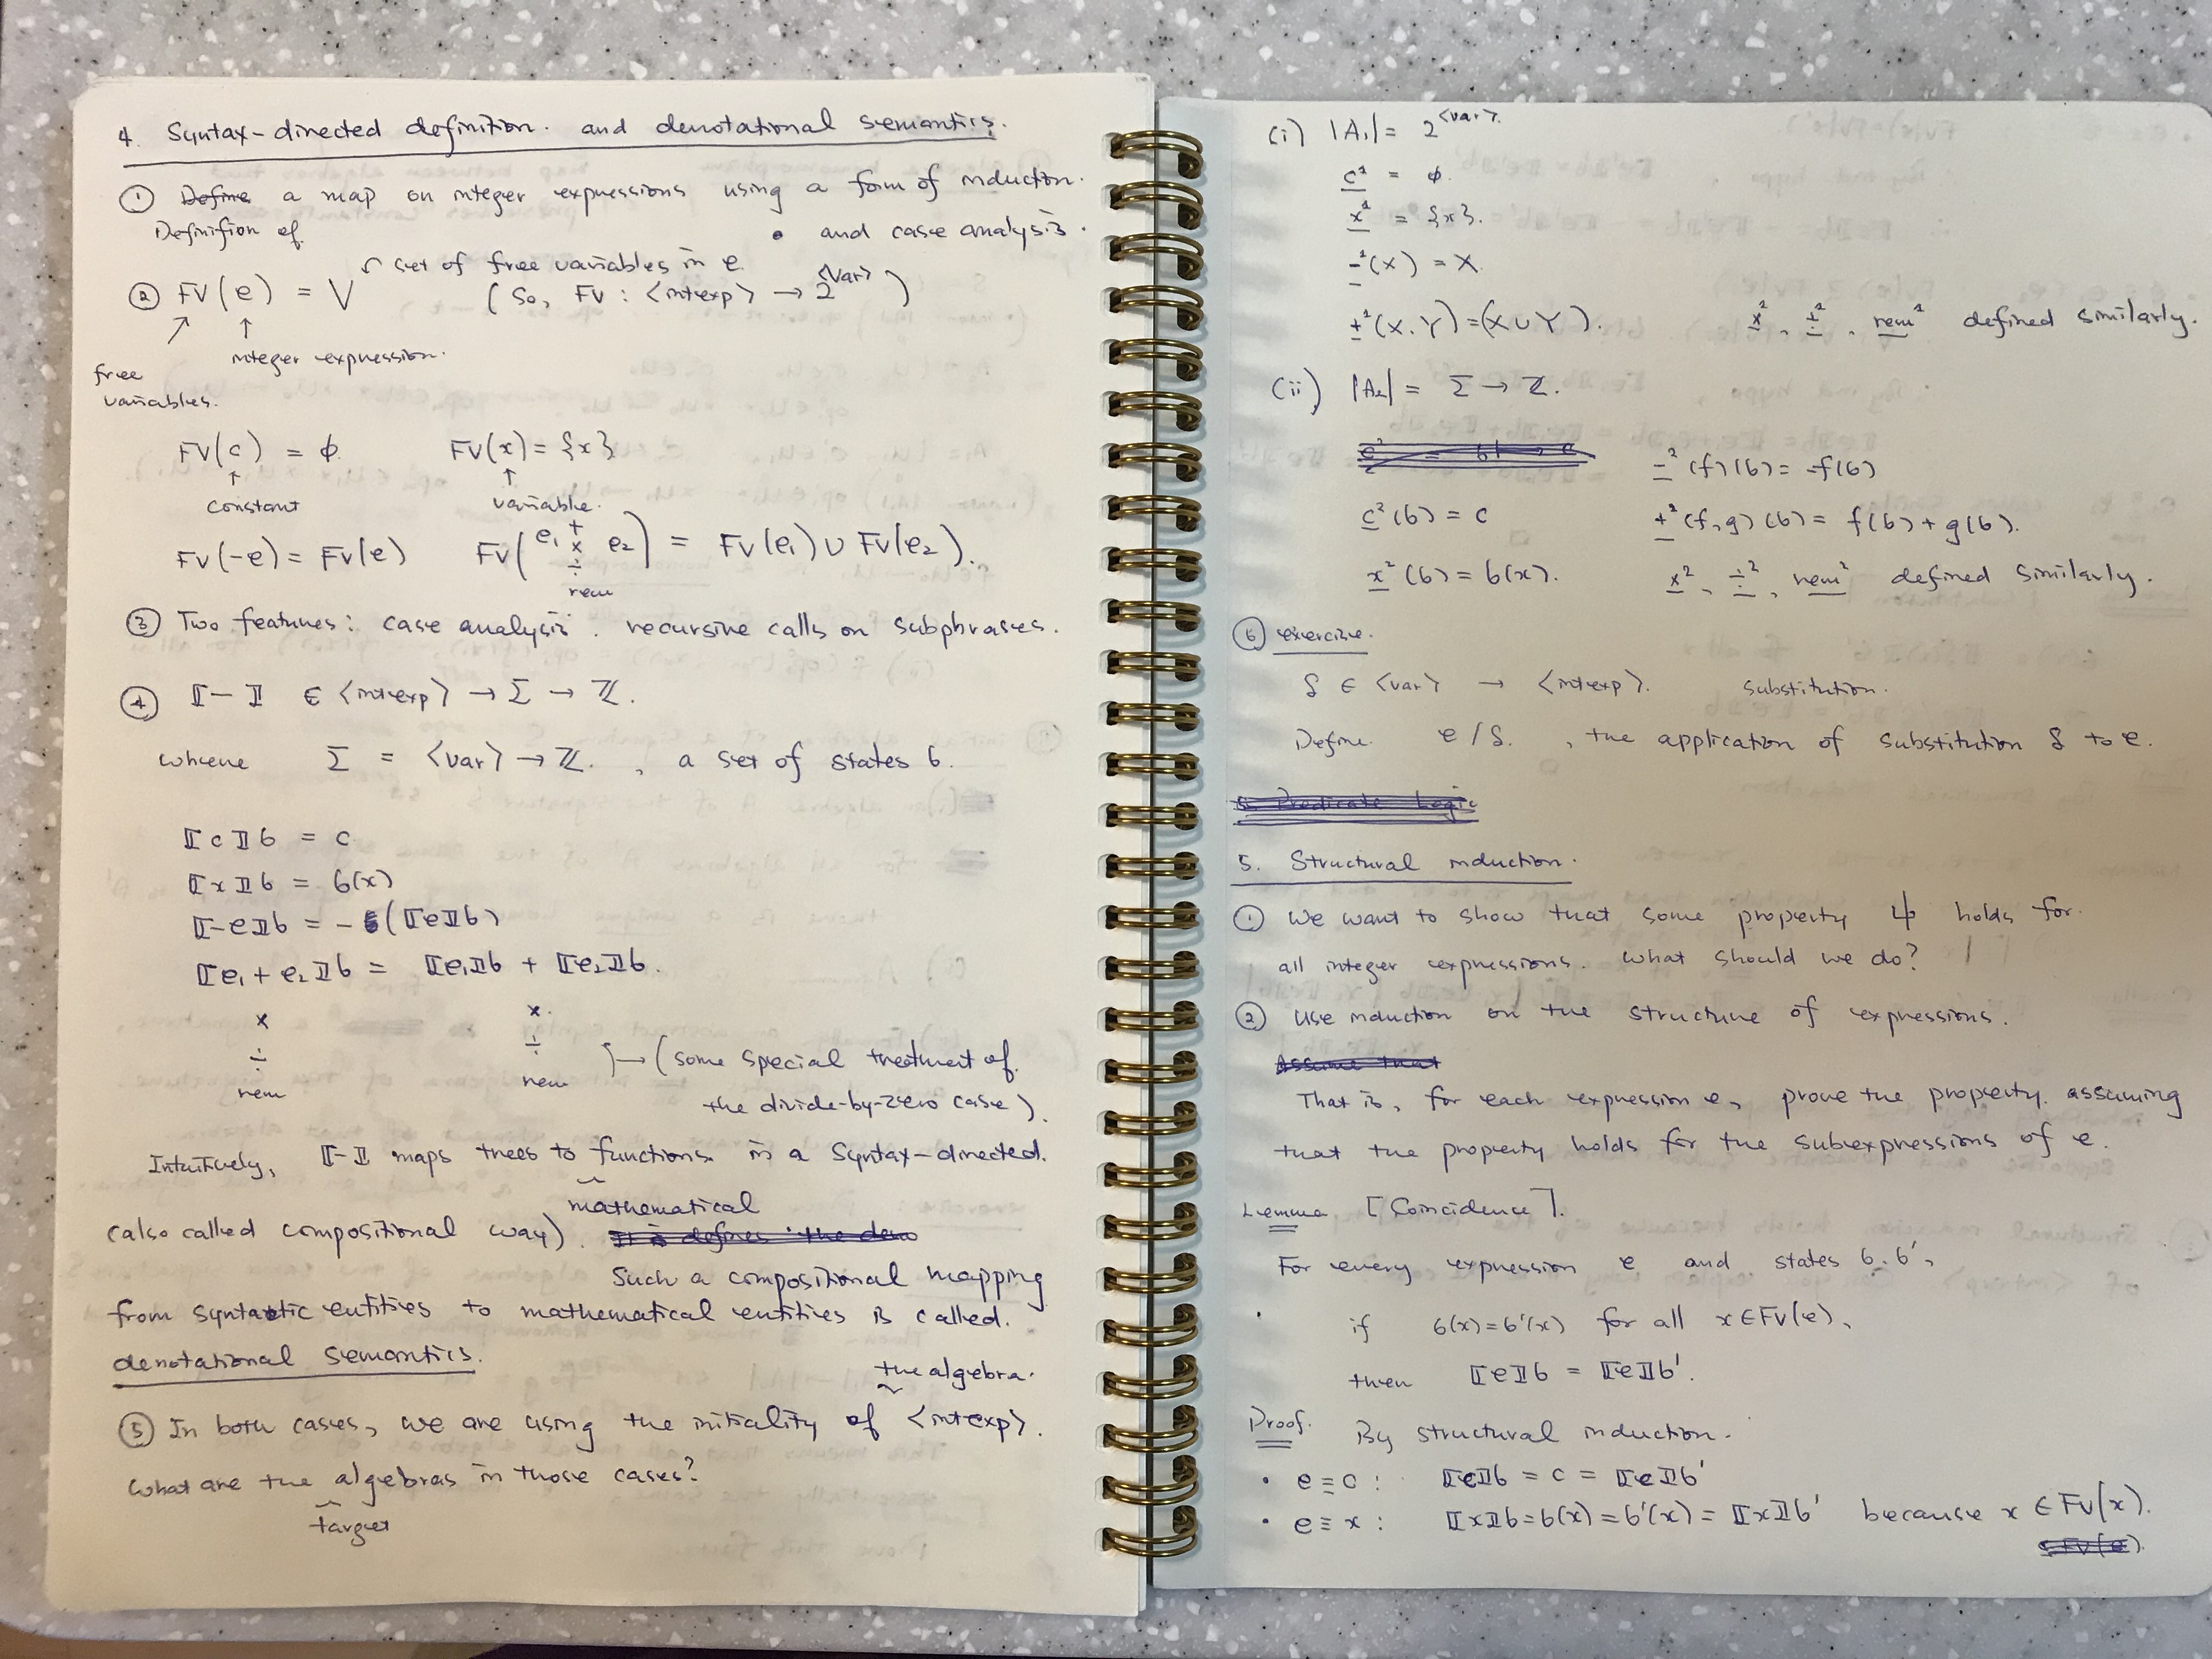 4. Syntax-directed definition. and denotational semantics.
① Define a map on integer expressions using a form of induction.
Definition of. and case analysis.
② FV(e) = V ↙ set of free variables in e. (So, FV : <intexp> → 2^<var>)
↗ ↑
integer expression.
free
variables.
FV(c) = ϕ. FV(x) = {x}
↑ ↑
constant variable.
FV(-e) = FV(e) FV(e₁ + × ÷ rem e₂) = FV(e₁) ∪ FV(e₂).
③ Two features: case analysis. recursive calls on subphrases.
④ ⟦-⟧ ∈ <intexp> → Σ → ℤ.
where Σ = <var> → ℤ. , a set of states σ.
⟦c⟧σ = c
⟦x⟧σ = σ(x)
⟦-e⟧σ = -(⟦e⟧σ)
⟦e₁ + e₂⟧σ = ⟦e₁⟧σ + ⟦e₂⟧σ.
× ×.
÷ ÷
rem rem } → (some special treatment of.
the divide-by-zero case).
Intuitively, ⟦-⟧ maps trees to functions in a syntax-directed.
mathematical
(also called compositional way). It is defines the deno
Such a compositional mapping
from syntactic entities to mathematical entities is called.
denotational semantics.
the algebra.
⑤ In both cases, we are using the initiality of <intexp>.
What are the algebras in those cases?
target
(i) |A₁| = 2^<var>.
c¹ = ϕ.
x¹ = {x}.
-¹(X) = X.
+¹(X, Y) = (X ∪ Y). ×¹, ÷¹, rem¹ defined similarly.
(ii) |A₂| = Σ → ℤ.
-²(f)(σ) = -f(σ)
c²(σ) = c +²(f, g)(σ) = f(σ) + g(σ).
x²(σ) = σ(x). ×², ÷², rem² defined similarly.
⑥ exercise.
δ ∈ <var> → <intexp>. substitution.
Define. e / δ. , the application of substitution δ to e.
5. Predicate Logic
5. Structural induction.
① We want to show that some property ψ holds for.
all integer expressions. What should we do?
② Use induction on the structure of expressions.
Assume that
That is, for each expression e, prove the property. assuming
that the property holds for the subexpressions of e.
Lemma [Coincidence].
For every expression e and states σ, σ',
if σ(x) = σ'(x) for all x ∈ FV(e),
then ⟦e⟧σ = ⟦e⟧σ'.
Proof. By structural induction.
• e ≡ c : ⟦c⟧σ = c = ⟦c⟧σ'
• e ≡ x : ⟦x⟧σ = σ(x) = σ'(x) = ⟦x⟧σ' because x ∈ FV(x).
FV(e).